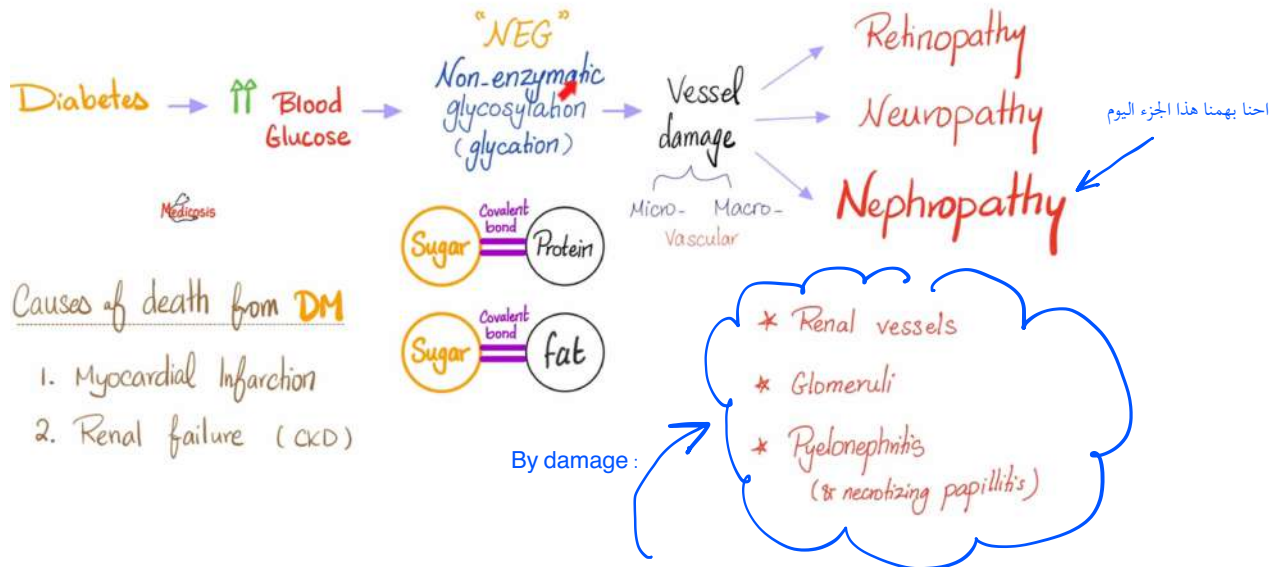 "NEG"
Diabetes
Blood
Glucose
Non-enzymatic
glycosylation
(glycation)
Vessel
damage
Micro- Macro-
Vascular
Retinopathy
Neuropathy
Nephropathy
احنا بهمنا هذا الجزء اليوم
Medicosis
Sugar
Covalent
bond
Protein
Sugar
Covalent
bond
fat
Causes of death from DM
1. Myocardial Infarction
2. Renal failure (CKD)
By damage :
* Renal vessels
* Glomeruli
* Pyelonephritis
(& necrotizing papillitis)